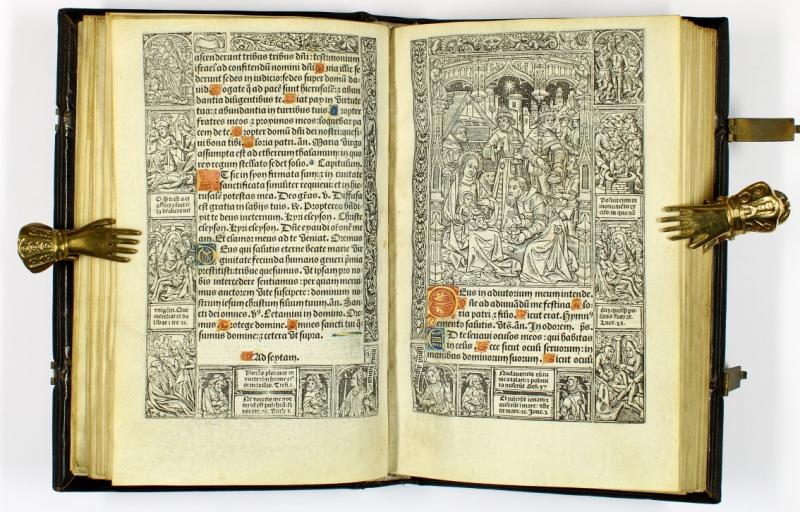 ascenderunt tribus tribus dñi: testimonium
israel ad confitendū nomini dñi Quia illic se
derunt sedes in iudicio: sedes super domū da-
uid. Rogate q̃ ad pacē sunt hierusalē: ⁊ abun
dantia diligentibus te Fiat pax in virtute
tua: ⁊ abundantia in turribus tuis. Propter
fratres meos ⁊ proximos meos: loquebar pa
cem de te. Propter domū dñi dei nostri: quesi-
ui bona tibi. Gloria patri. añ. Maria virgo
assumpta est ad ethereum thalamum: in quo
rex regum stellato sedet solio. Capitulum.
ET sic in syon firmata sum: ⁊ in ciuitate
sanctificata similiter requieui: et in hie
rusalē potestas mea. Deo grās. v. Diffusa
est gratia in labiis tuis. R. Propterea bñdi
xit te deus ineternum. Kyri eleyson. Christe
eleyson. Kyri eleyson. Dñe exaudi orōnē me
am. Et clamor meus ad te veniat. Oremus
DEus qui salutis eterne beate marie vir
ginitate fecunda humano generi p̄mia
prestitisti: tribue quesumus. Ut ipsam pro no
bis intercedere sentiamus: per quam merui
mus auctorem vite suscipere: dominum no
strum iesum christum filium tuum. añ. San
cti dei omnes. v. Letamini in domino. Ore
mus Protege domine. Omnes sancti tui q̄
sumus domine: ⁊ cetera vt supra.
Ad sextam.
Ne vocetis me noe
mi id est pulchrā: s̄
vocate. Ruth i.
DEus in adiutorium meum intende
Dñe ad adiuuādū me festina. Glo
ria patri ⁊ filio. Sicut erat. Hymn⁹
Memento salutis. vt s̄. añ. In odorem. p̄s.
AD te leuaui oculos meos: qui habitas
in celis. Ecce sicut oculi seruorum: in
manibus dominorum suorum. Sicut oculi
Posuit eum in
monumēto
in quo nō
Nudauerunt eū tu
nica talari: ⁊ polimi
ta miserūt Gen. 37
Et tulerūt ionam ⁊
miserūt ī mare:
mare. Jone. i.